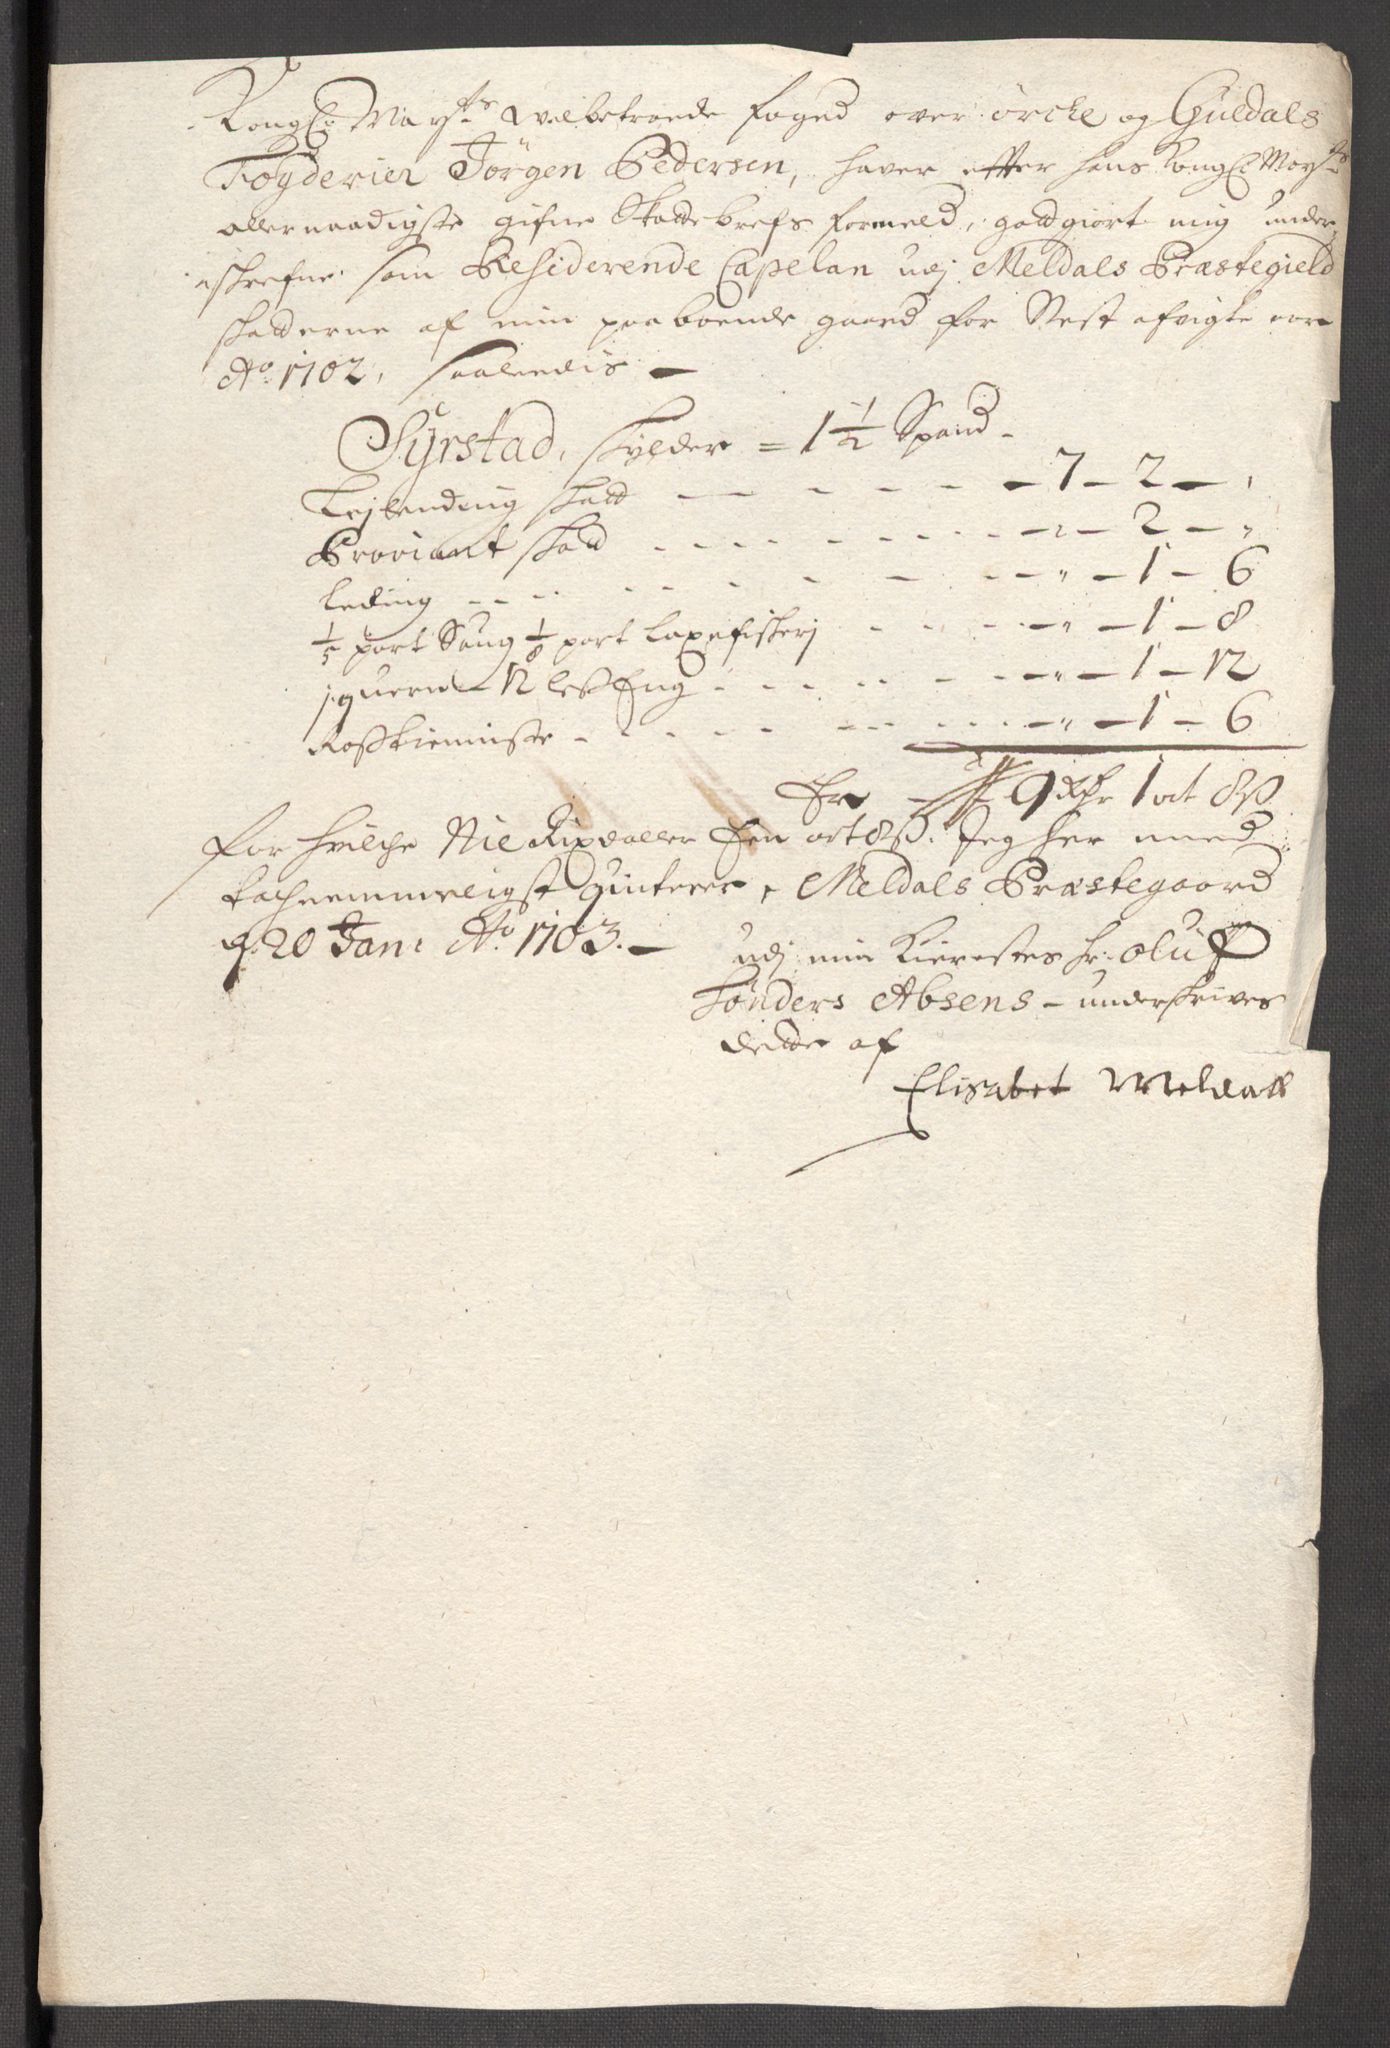 Kongl: Mayts Welbetroede foged over örcke og Guldals
Fogderier Jörgen Pedersen, haver effter hans Kongl Mayts
allernaadigste gifne Skattebrefs formeld, godtgiort mig under
skrefne som Residerende Capelan udj Meldals Præstegield
skatterne af min paaboende gaard for Nest afvigte aar
Ao 1702, saaledis
Syrstad, skylder = 1½ Spand
Lejlending skatt - 7 - 2 -
Proviant skatt - " - 2 - "
Leding - " - 1 - 6
1/5 part Saug 1/8 part Laxefiskerj - " - 1 - 8
j quern - 12 less Eng - " - 1 - 12
Rosstienniste - " - 1 - 6
Er 9 Rdr 1 ort 8 ß
for hvilche Nie Rixdaller Een ort 8 ß. Jeg her med
tachnemmeligst quiterer, Meldals Præstegaard
d: 20 Jan: Ao 1703.
udj min Kierestes hr: oluf
Tønders Absens - underskrives
dette af
Elisabet Meldall